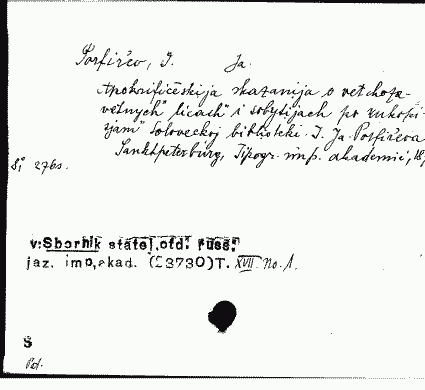 Porfiŕev, I. Ja.
Apokrifičeskija skazanija o vetchoza-
vetnych licach i sobytijach po rukopi-
sjam Soloveckoj biblioteki. I. Ja. Porfiŕeva
Sanktpeterburg, Tipogr. imp. akademii, 18
8° 276s.
v:Sbornik statej.otd. russ.
jaz. imp.akad. (23730)T. XVII. No. 1.
S